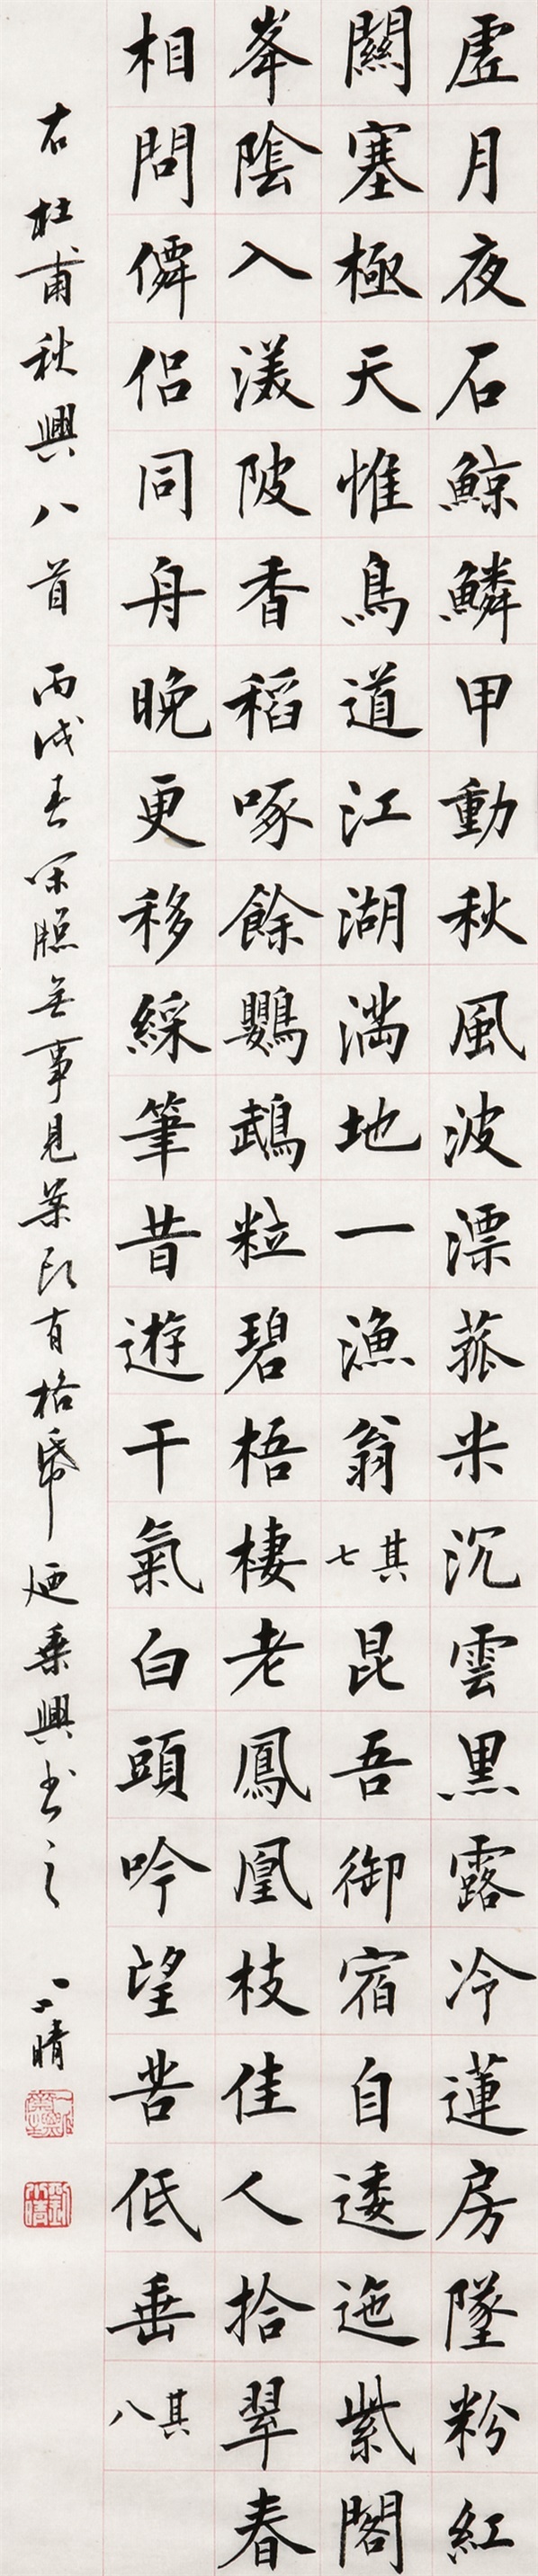 虛月夜石鯨鱗甲動秋風波漂菰米沉雲黑露冷蓮房墜粉紅
關塞極天惟鳥道江湖滿地一漁翁其七昆吾御宿自逶迤紫閣
峯陰入渼陂香稻啄餘鸚鵡粒碧梧棲老鳳凰枝佳人拾翠春
相問僊侶同舟晚更移綵筆昔遊干氣白頭吟望苦低垂其八
右杜甫秋興八首丙戌春無事見案有格紙乘興書之
晴